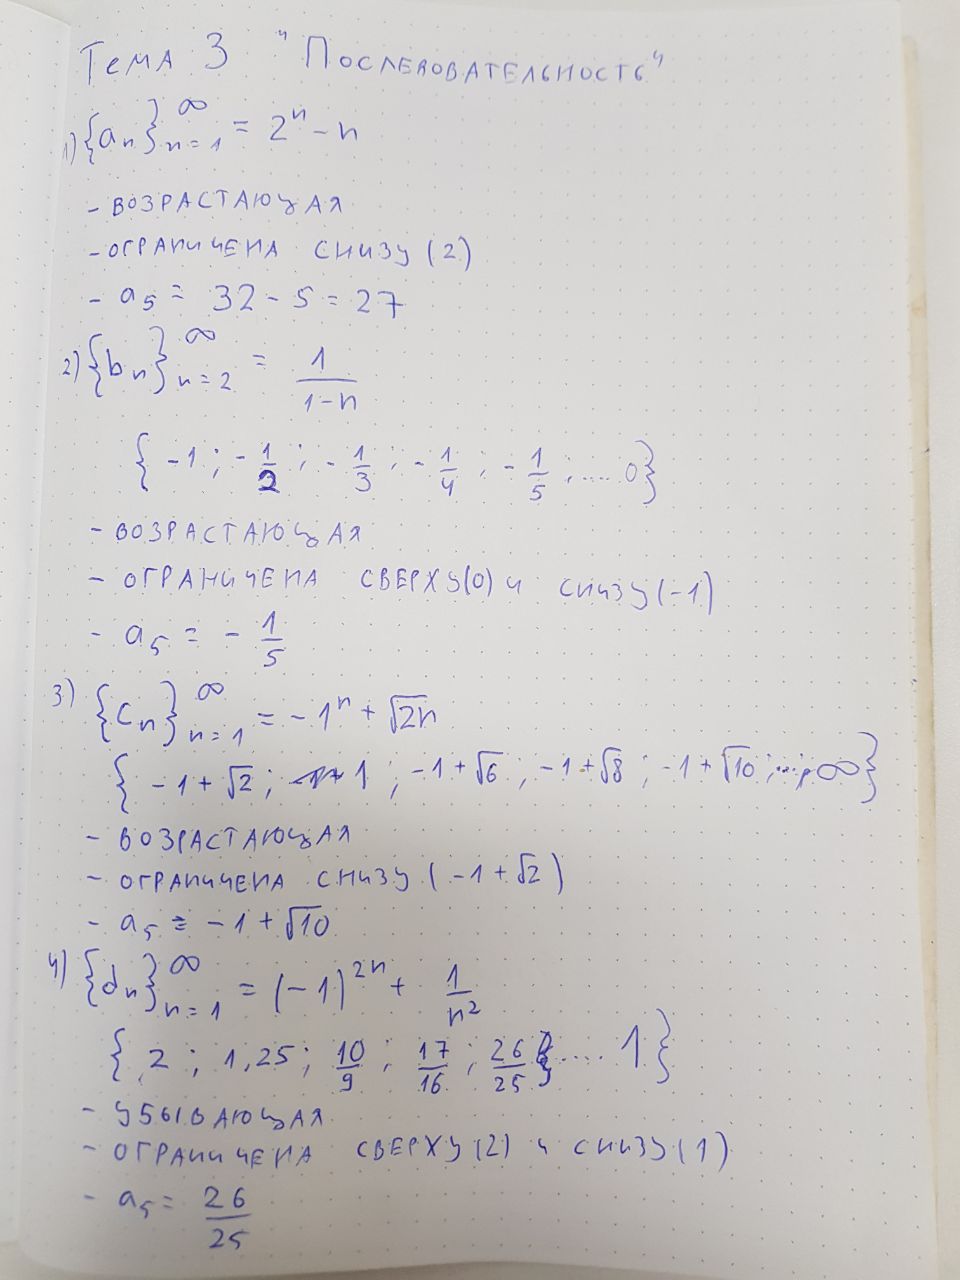 Тема 3 "Последовательность"
1) {aₙ}ₙ₌₁^∞ = 2ⁿ - n
- возрастающая
- ограничена снизу (2)
- a₅ = 32 - 5 = 27
2) {bₙ}ₙ₌₂^∞ = 1/(1-n)
{-1; -1/2; -1/3; -1/4; -1/5; .... 0}
- возрастающая
- ограничена сверху(0) и снизу(-1)
- a₅ = - 1/5
3) {cₙ}ₙ₌₁^∞ = -1ⁿ + √2n
{-1 + √2; 1; -1 + √6; -1 + √8; -1 + √10; ...; ∞}
- возрастающая
- ограничена снизу (-1 + √2)
- a₅ = -1 + √10
4) {dₙ}ₙ₌₁^∞ = (-1)²ⁿ + 1/n²
{2; 1,25; 10/9; 17/16; 26/25 .... 1}
- убывающая
- ограничена сверху (2) и снизу (1)
- a₅ = 26/25